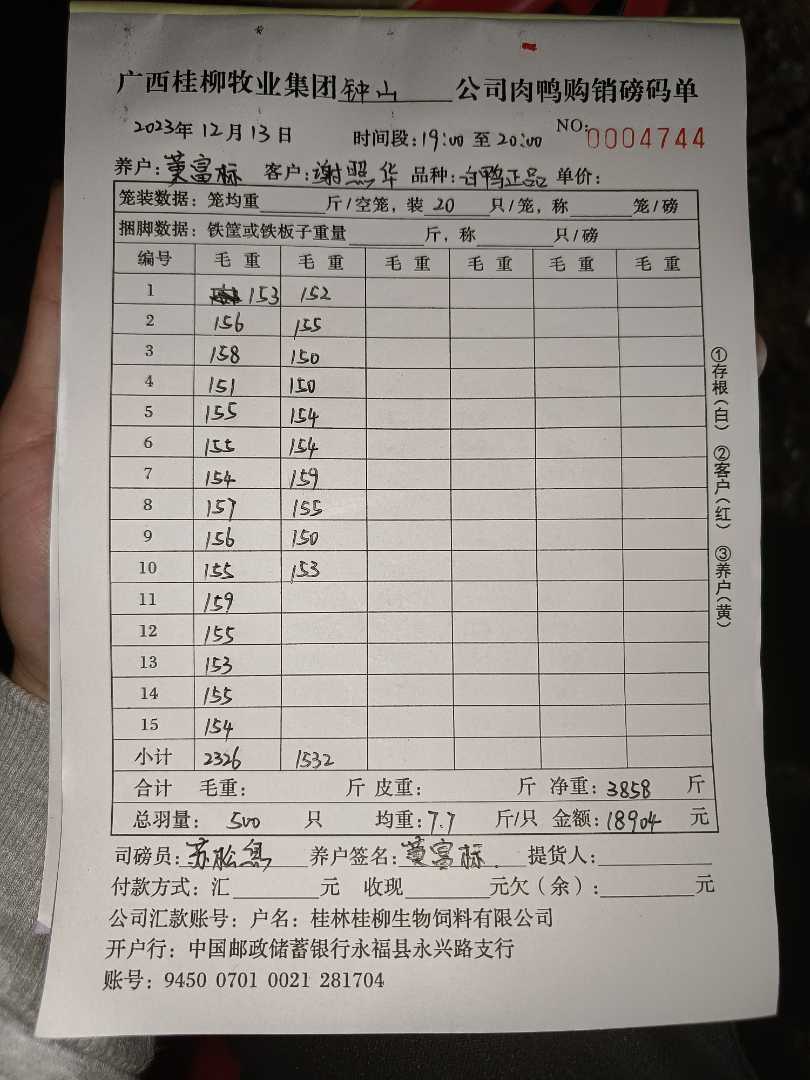 广西桂柳牧业集团钟山公司肉鸭购销磅码单
2023年12月13日 时间段:19:00至20:00 NO:0004744
养户:黄富标 客户:谢照华 品种:白鸭正品 单价:
笼装数据:笼均重______斤/空笼,装20只/笼,称______笼/磅
捆脚数据:铁筐或铁板子重量______斤,称______只/磅
编号 毛重 毛重 毛重 毛重 毛重 毛重
1 153 152
2 156 155
3 158 150
4 151 150
5 155 154
6 155 154
7 154 159
8 157 155
9 156 150
10 155 153
11 159
12 155
13 153
14 155
15 154
小计 2326 1532
合计 毛重: 斤 皮重: 斤 净重:3858 斤
总羽量:500 只 均重:7.7 斤/只 金额:18904 元
司磅员:苏松 养户签名:黄富标 提货人:
付款方式:汇______元 收现______元欠(余):______元
公司汇款账号:户名:桂林桂柳生物饲料有限公司
开户行:中国邮政储蓄银行永福县永兴路支行
账号:9450 0701 0021 281704
①存根(白) ②客户(红) ③养户(黄)